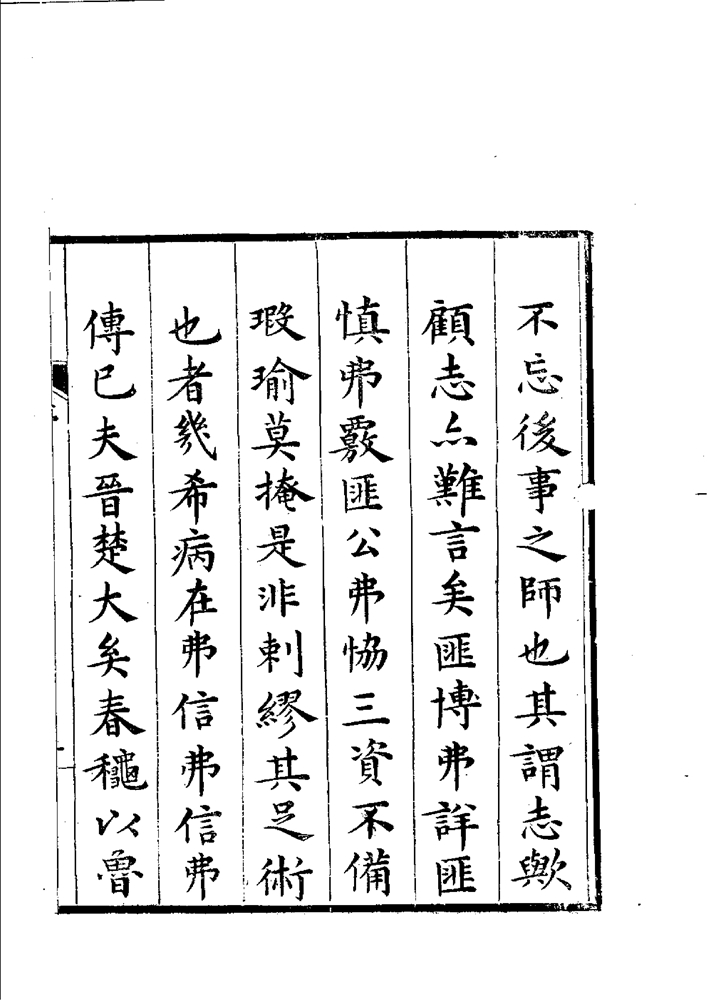 不忘後事之師也其謂志歟
顧志亦難言矣匪博弗詳匪
慎弗覈匪公弗恊三資不備
瑕瑜莫掩是非剌繆其足術
也者幾希病在弗信弗信弗
傳巳夫晉楚大矣春龝以魯